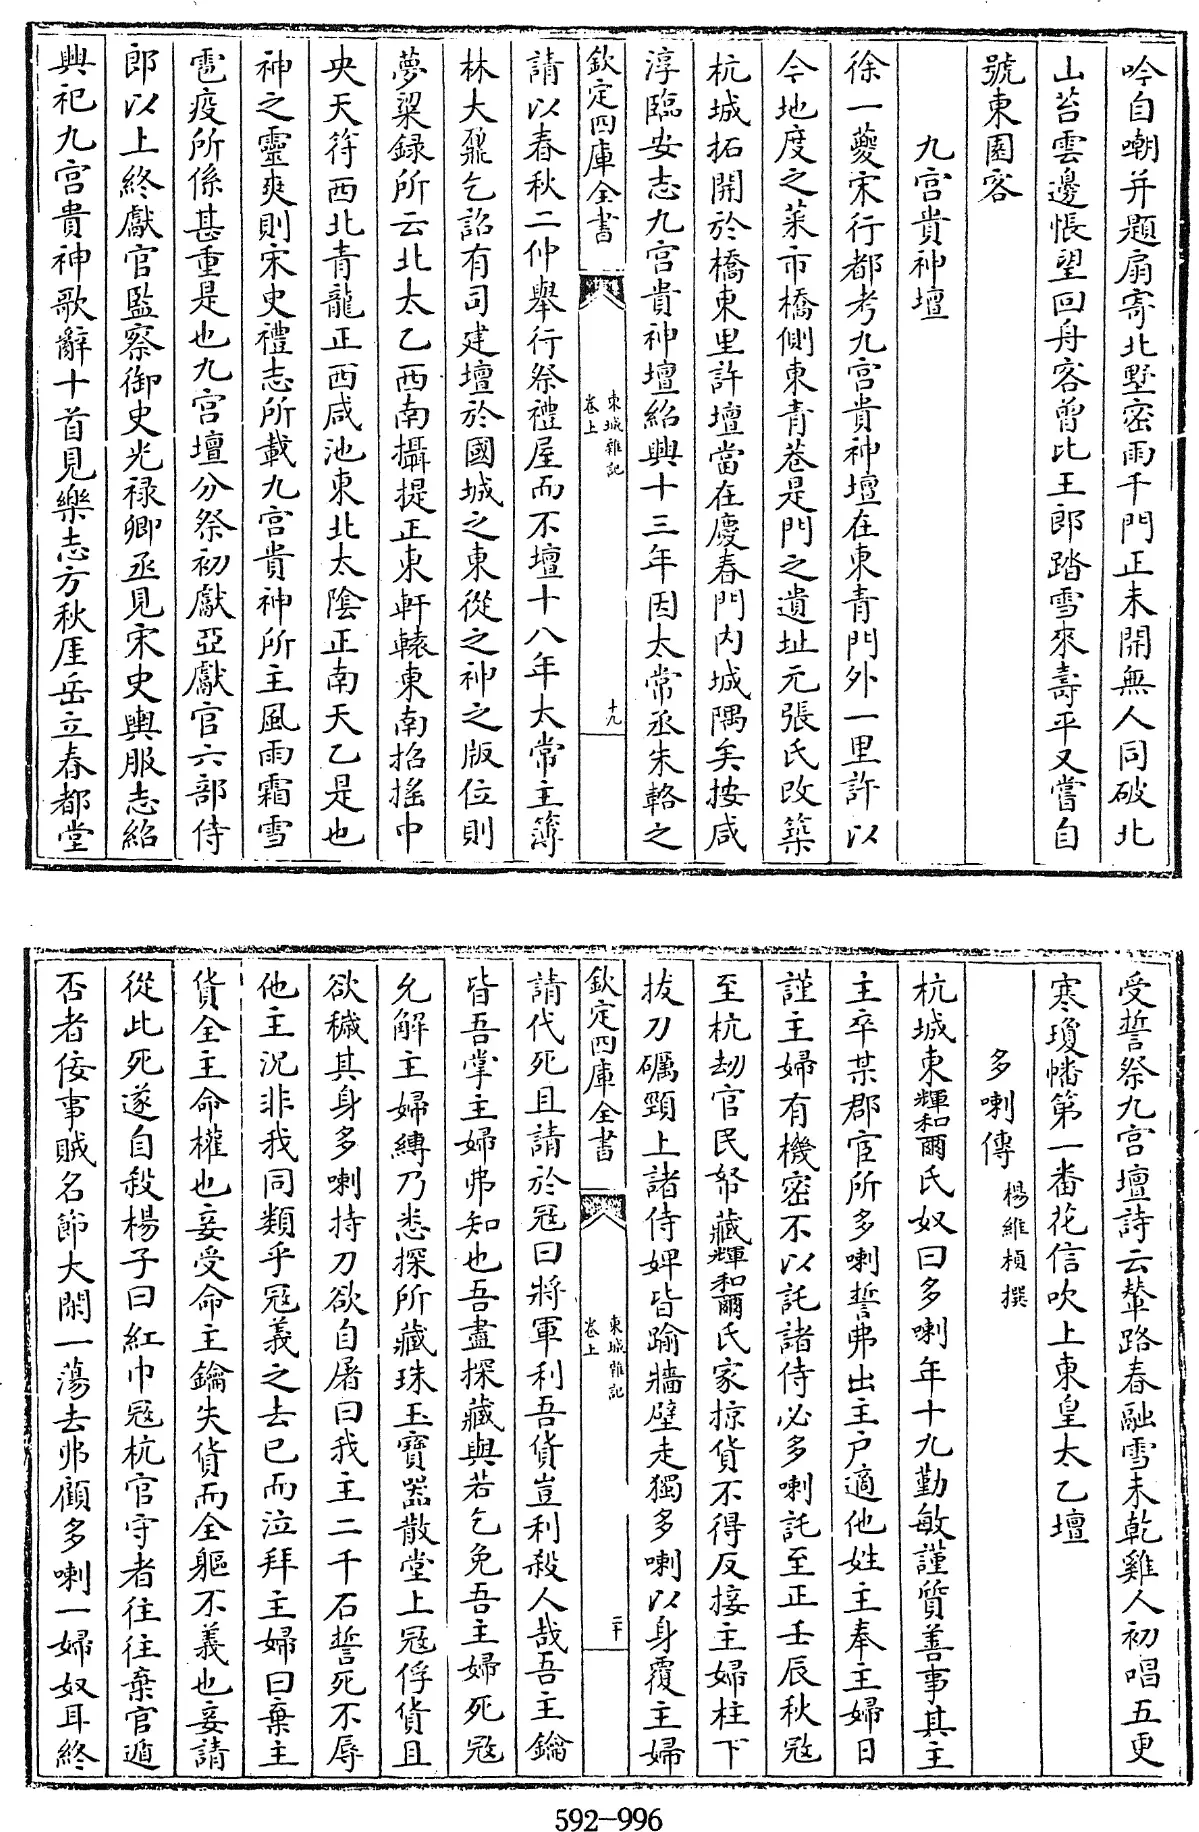 吟自嘲并題扇寄北墅密雨千門正未開無人同破北
山苔雲邊悵望回舟客曾比王郎踏雪來壽平又嘗自
號東園客
九宮貴神壇
徐一夔宋行都考九宮貴神壇在東青門外一里許以
今地度之菜市橋側東青巷是門之遺址元張氏改築
杭城拓開於橋東里許壇當在慶春門内城隅矣按咸
淳臨安志九宮貴神壇紹興十三年因太常丞朱輅之
欽定四庫全書
東城雜記
卷上
十九
請以春秋二仲舉行祭禮屋而不壇十八年太常主簿
林大鼐乞詔有司建壇於國城之東從之神之版位則
夢粱録所云北太乙西南攝提正東軒轅東南招搖中
央天符西北青龍正西咸池東北太陰正南天乙是也
神之靈爽則宋史禮志所載九宮貴神所主風雨霜雪
雹疫所係甚重是也九宮壇分祭初獻亞獻官六部侍
郎以上終獻官監察御史光禄卿丞見宋史輿服志紹
興祀九宮貴神歌辭十首見樂志方秋厓岳立春都堂
受誓祭九宮壇詩云輦路春融雪未乾雞人初唱五更
寒瓊幡第一番花信吹上東皇太乙壇
多喇傳 楊維楨撰
杭城東輝和爾氏奴曰多喇年十九勤敏謹質善事其主
主卒某郡宦所多喇誓弗出主户適他姓主奉主婦日
謹主婦有機密不以託諸侍必多喇託至正壬辰秋寇
至杭劫官民帑藏輝和爾氏家掠貨不得反接主婦柱下
拔刀礪頸上諸侍婢皆踰牆壁走獨多喇以身覆主婦
欽定四庫全書
東城雜記
卷上
二十
請代死且請於寇曰將軍利吾貨豈利殺人哉吾主鑰
皆吾掌主婦弗知也吾盡探藏與若乞免吾主婦死寇
允解主婦縛乃悉探所藏珠玉寶器散堂上寇俘貨且
欲穢其身多喇持刀欲自屠曰我主二千石誓死不辱
他主況非我同類乎寇義之去已而泣拜主婦曰棄主
貨全主命權也妾受命主鑰失貨而全軀不義也妾請
從此死遂自殺楊子曰紅巾寇杭官守者往往棄官遁
否者佞事賊名節大閑一蕩去弗顧多喇一婦奴耳終
592-996